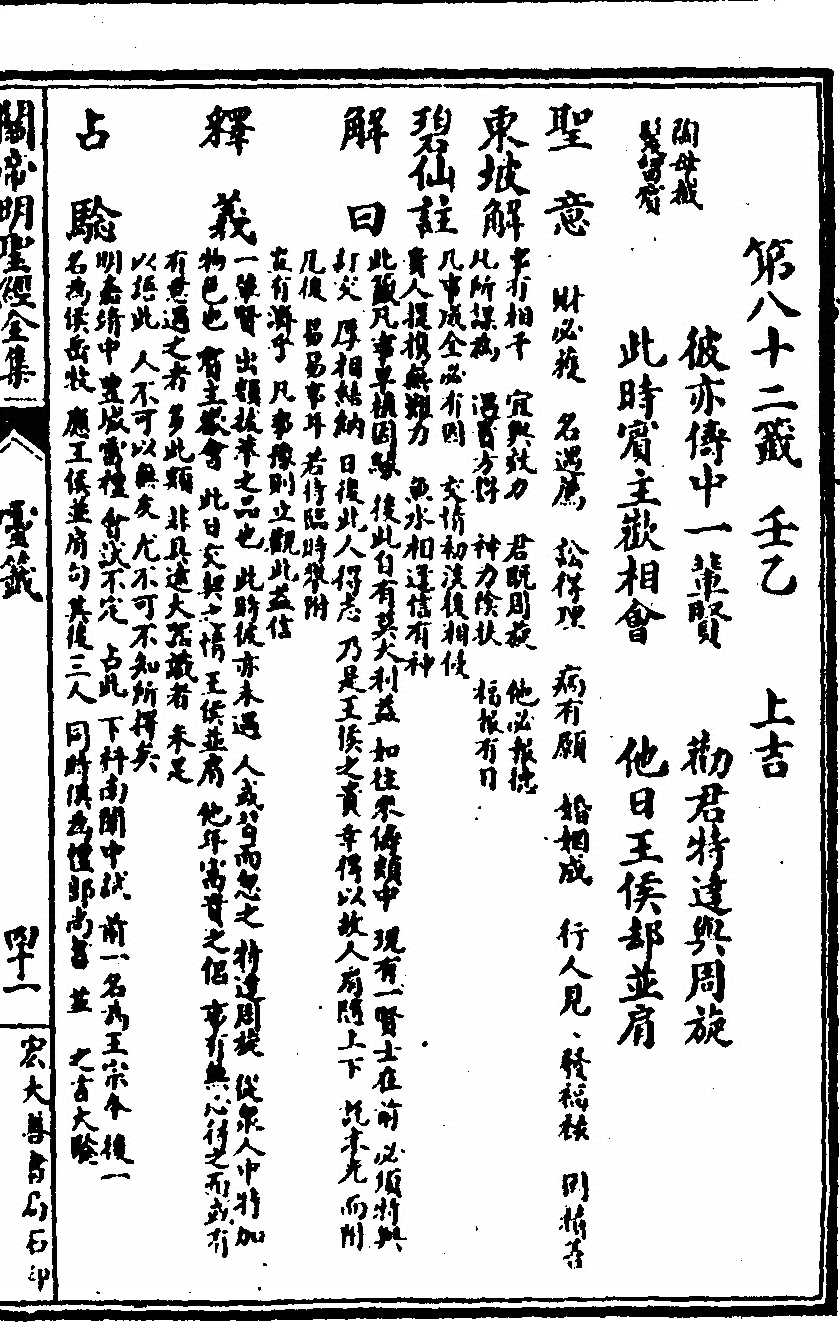 第八十二籤 壬乙 上吉
陶母截
髮留賓
彼亦儔中一輩賢 勸君特達與周旋
此時賓主歡相會 他日王侯却並肩
聖意 財必獲 名遇薦 訟得理 病有願 婚姻成 行人見
東坡解 事有相干 宜與效力 君既周旋 他必報德
此所謀為 遇貴方得 神力陰扶 福報有日
碧仙註 凡事成全必有因 交情初淡後相侵
貴人提携無難力 魚水相逢信有神
解曰 此籤凡事早積因緣 後此自有莫大利益 如往來儔類中 現有一賢士在前 必須特與
訂交 厚相結納 日後此人得志 乃是王侯之貴 幸得以故人肩隨上下
凡後 易易事耳 若待臨時攀附
豈有濟乎 凡事豫則立 觀此益信
釋義 一輩賢 出類拔萃之品也 此時彼亦未遇 人或等而忽之 特達周旋 從衆人中特加
物色也 賓主歡會 此日交契之情 王侯並肩 他年富貴之侶 事有無心待之而或有
有意遇之者 多此類 非具遠大
以語此 人不可以無友 尤不可不知所擇矣
占驗 明嘉靖中 豐城雷禮 會試不定 占此 下科南闈中式 前一名為王宗 後一
名為侯岳牧 應王侯並肩句 其後三人 同時俱為禮部尚書
關帝明聖經全集
靈籤
四十一
宏大善書局石印